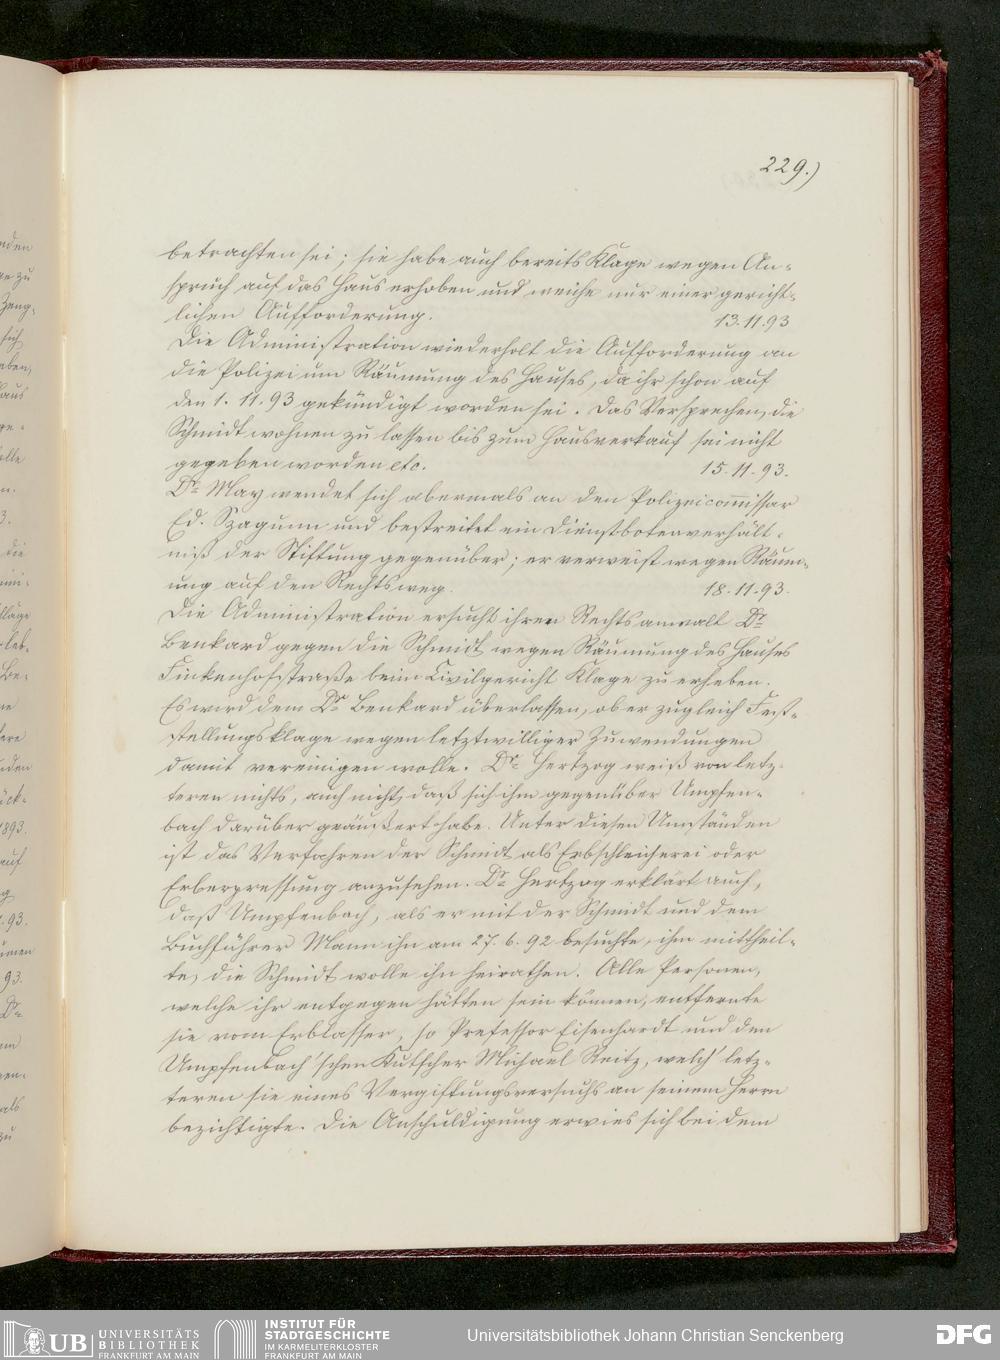 229.)
betrachten sei; sie habe auch bereits Klage wegen An-
spruch auf das Haus erhoben und weiche nur einer gericht-
lichen Aufforderung. 13.11.93
Die Administration wiederholt die Aufforderung an
die Polizei um Räumung des Hauses, da ihr schon auf
den 1. 11. 93 gekündigt worden sei. Das Versprechen, die
Schmidt wohnen zu lassen bis zum Hausverkauf sei nicht
gegeben worden etc. 15.11.93.
Dr. May wendet sich abermals an den Polizeicom̄issar
Ed. Szagunn und bestreitet ein Dienstbotenverhält-
niß der Stiftung gegenüber; er verweist wegen Räum-
ung auf den Rechtsweg. 18.11.93.
Die Administration ersucht ihren Rechtsanwalt Dr.
Benkard gegen die Schmidt wegen Räumung des Hauses
Finkenhofstraße beim Civilgericht Klage zu erheben.
Es wird dem Dr. Benkard überlassen, ob er zugleich Fest-
stellungsklage wegen letztwilliger Zuwendungen
damit vereinigen wolle. Dr. Hertzog weiß von letz-
teren nichts, auch nicht, daß sich ihm gegenüber Umpfen-
bach darüber geäußert habe. Unter diesen Umständen
ist das Verfahren der Schmidt als Erbschleicherei oder
Erberpressung anzusehen. Dr. Hertzog erklärt auch,
daß Umpfenbach, als er mit der Schmidt und dem
Buchführer Mann ihn am 27. 6. 92 besuchte, ihm mittheil-
te, die Schmidt wolle ihn heirathen. Alle Personen,
welche ihr entgegen hätten sein können, entfernte
sie vom Erblasser, so Professor Eisenhardt und den
Umpfenbach'schen Kutscher Michael Reitz, welch' letz-
teren sie eines Vergiftungsversuchs an seinem Herrn
bezichtigte. Die Anschuldigung erwies sich bei dem
UB UNIVERSITÄTS
BIBLIOTHEK
FRANKFURT AM MAIN
INSTITUT FÜR
STADTGESCHICHTE
IM KARMELITERKLOSTER
FRANKFURT AM MAIN
Universitätsbibliothek Johann Christian Senckenberg
DFG